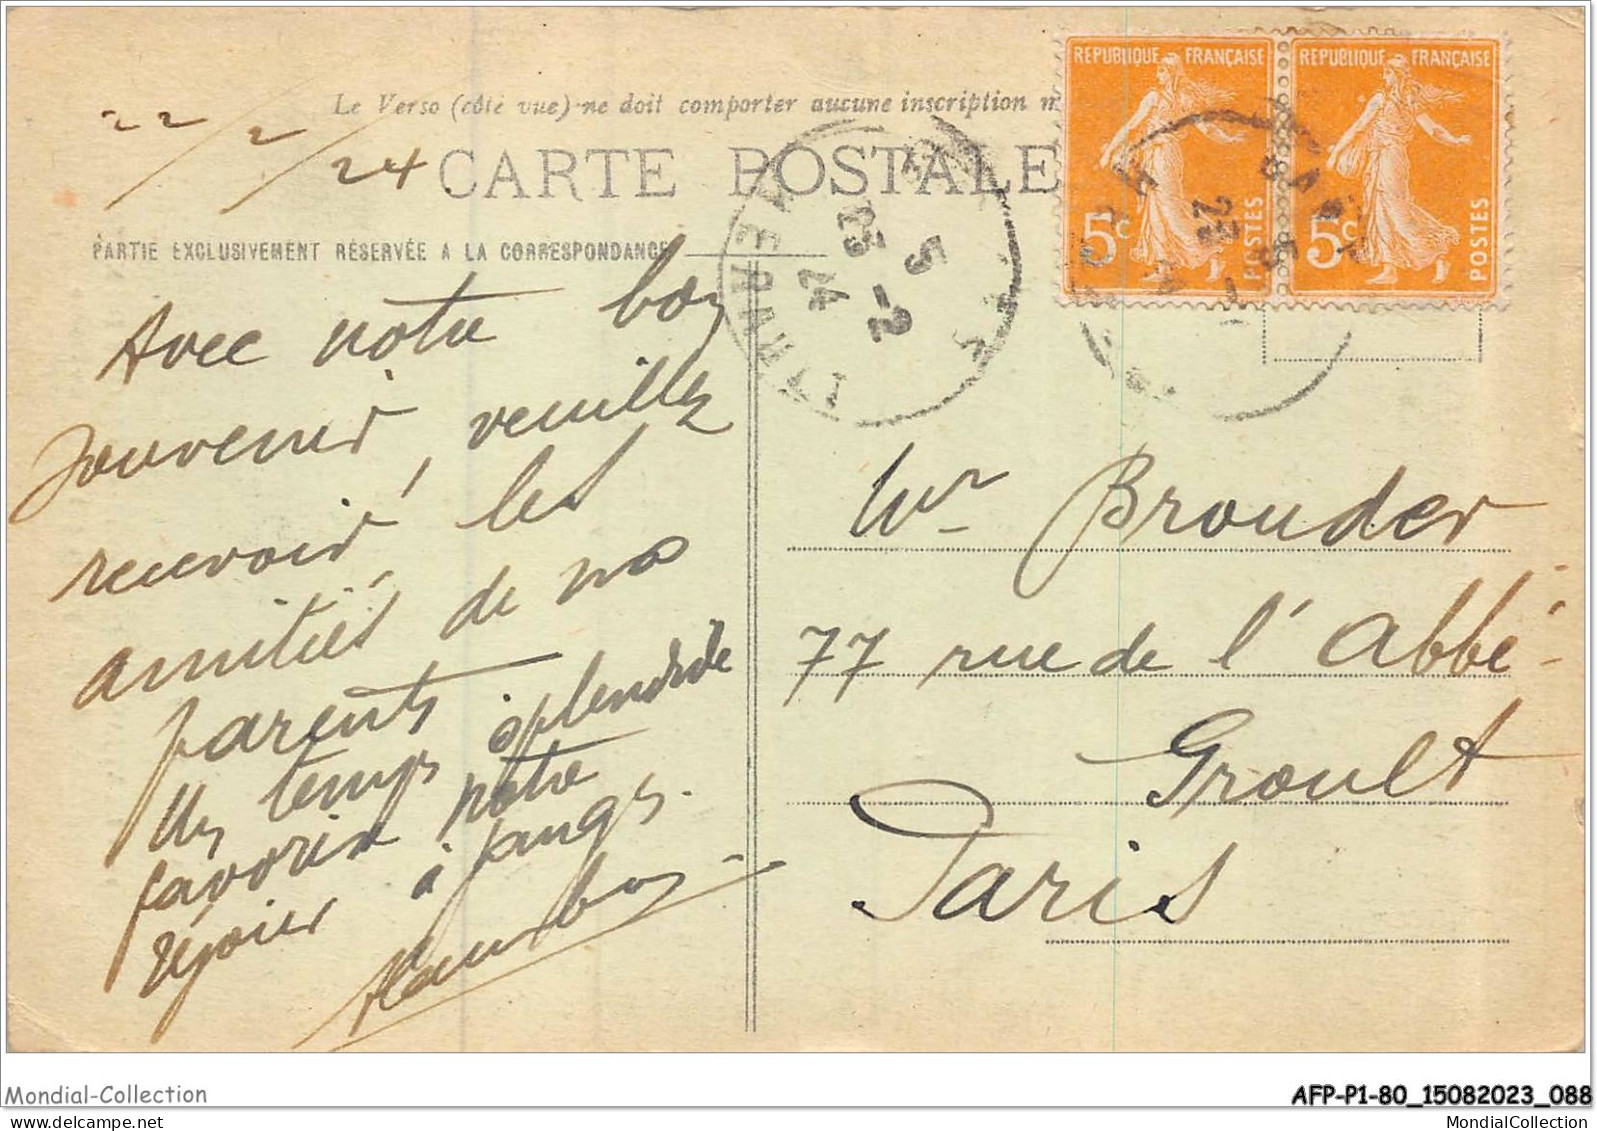 22/2/24
Le Verso (côté vue) ne doit comporter aucune inscription
CARTE POSTALE
PARTIE EXCLUSIVEMENT RÉSERVÉE A LA CORRESPONDANCE
REPUBLIQUE FRANÇAISE
5c
POSTES
REPUBLIQUE FRANÇAISE
5c
POSTES
5
23 -2
24
Avec notre bon
souvenir, veuillez
recevoir les
amitiés de nos
parents
Un temps splendide
favorise notre
séjour à
Mr Brouder
77 rue de l'Abbé-
Groult
Paris
Mondial-Collection
AFP-P1-80_15082023_088
MondialCollection